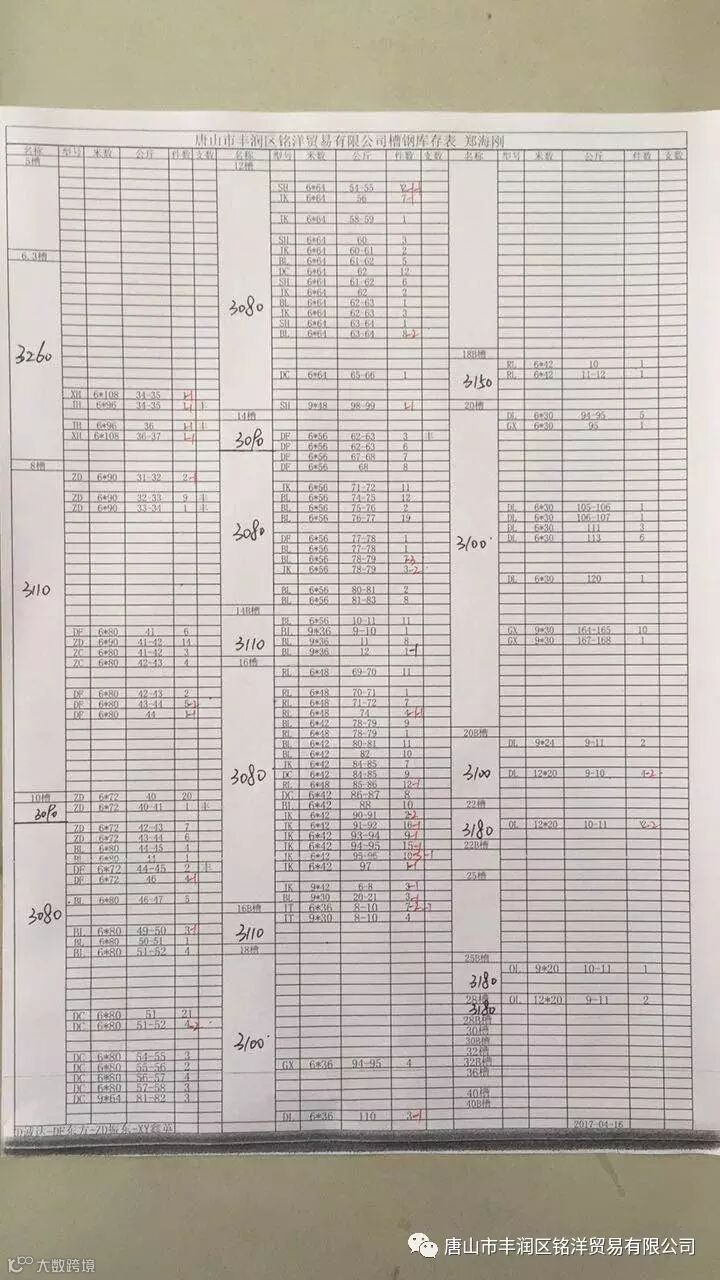 唐山市丰润区铭洋贸易有限公司槽钢库存表 郑海刚
名称 型号 米数 公斤 件数 支数
5槽
6.3槽
3260
XH 6*108 34-35
6*96 34-35 丰
6*96 36 丰
XH 6*108 36-37
8槽
ZD 6*90 31-32 2-1
ZD 6*90 32-33 9 丰
ZD 6*90 33-34 1 丰
3110
DF 6*80 41 6
ZD 6*90 41-42 14
ZC 6*80 41-42 3
ZC 6*80 42-43 4
DF 6*80 42-43 2
DF 6*80 43-44 5-2
DF 6*80 44
ZD 6*72 40 20
10槽
3090
ZD 6*72 40-41 1 丰
ZD 6*72 42-43 7
ZD 6*72 43-44 6
BL 6*80 44-45 4
BL 6*80 44 1
DF 6*72 44-45 2 丰
DF 6*72 46
3080
BL 6*80 46-47 5
BL 6*80 49-50 3-1
BL 6*80 50-51 1
BL 6*80 51-52 4
DC 6*80 51 21
DC 6*80 51-52 4-2
DC 6*80 54-55 3
DC 6*80 55-56 2
DC 6*80 56-57 4
DC 6*80 57-58 3
DC 9*64 81-82 3
名称 型号 米数 公斤 件数 支数
12槽
SH 6*64 54-55
JK 6*64 56
JK 6*64 58-59 1
SH 6*64 60 3
JK 6*64 60-61 2
BL 6*64 61-62 5
DC 6*64 62 12
SH 6*64 61-62 6
JK 6*64 62 2
3080
BL 6*64 62-63 1
JK 6*64 62-63 3
SH 6*64 63-64 1
BL 6*64 63-64 8-2
DC 6*64 65-66 1
SH 9*48 98-99
14槽
3090
DF 6*56 62-63 3 丰
DF 6*56 62-63 6
DF 6*56 67-68 7
DF 6*56 68 8
JK 6*56 71-72 11
BL 6*56 74-75 12
BL 6*56 75-76 2
BL 6*56 76-77 19
3080
DF 6*56 77-78 1
BL 6*56 77-78 1
BL 6*56 78-79
JK 6*56 78-79 3-2
BL 6*56 80-81 2
BL 6*56 81-83 8
14B槽
BL 6*56 10-11 11
BL 9*36 9-10 1
3110
BL 9*36 11 8
BL 9*36 12 1-1
16槽
RL 6*48 69-70 11
RL 6*48 70-71 1
RL 6*48 71-72 7
RL 6*48 74
BL 6*42 78-79 9
RL 6*48 78-79 1
BL 6*42 80-81 11
BL 6*42 82 10
JK 6*42 84-85 7
3080
DC 6*42 84-85 9
RL 6*48 85-86 12-1
DC 6*42 86-87 8
BL 6*42 88 10
JK 6*42 90-91
JK 6*42 91-92 16-1
JK 6*42 93-94 9-1
JK 6*42 94-95 15-1
JK 6*42 95-96
JK 6*42 97
JK 9*42 6-8 3-1
BL 9*30 20-21 3-1
16B槽
IT 6*36 8-10
IT 9*30 8-10 4
3110
18槽
3100
GX 6*36 94-95 4
DL 6*36 110 3-1
名称 型号 米数 公斤 件数 支数
18B槽
RL 6*42 10 1
3150
RL 6*42 11-12 1
20槽
DL 6*30 94-95 5
GX 6*30 95 1
DL 6*30 105-106 1
DL 6*30 106-107 1
DL 6*30 111 3
DL 6*30 113 6
3100
DL 6*30 120 1
GX 9*30 164-165 10
GX 9*30 167-168 1
20B槽
DL 9*24 9-11 2
3100
DL 12*20 9-10 4-2
22槽
3180
OL 12*20 10-11
22B槽
25槽
25B槽
OL 9*20 10-11 1
3180
28槽
OL 12*20 9-11 2
3180
28B槽
30槽
30B槽
32槽
32B槽
36槽
40槽
40B槽
DF东方-ZD振东-XY鑫
2017-04-16
唐山市丰润区铭洋贸易有限公司
大数跨境